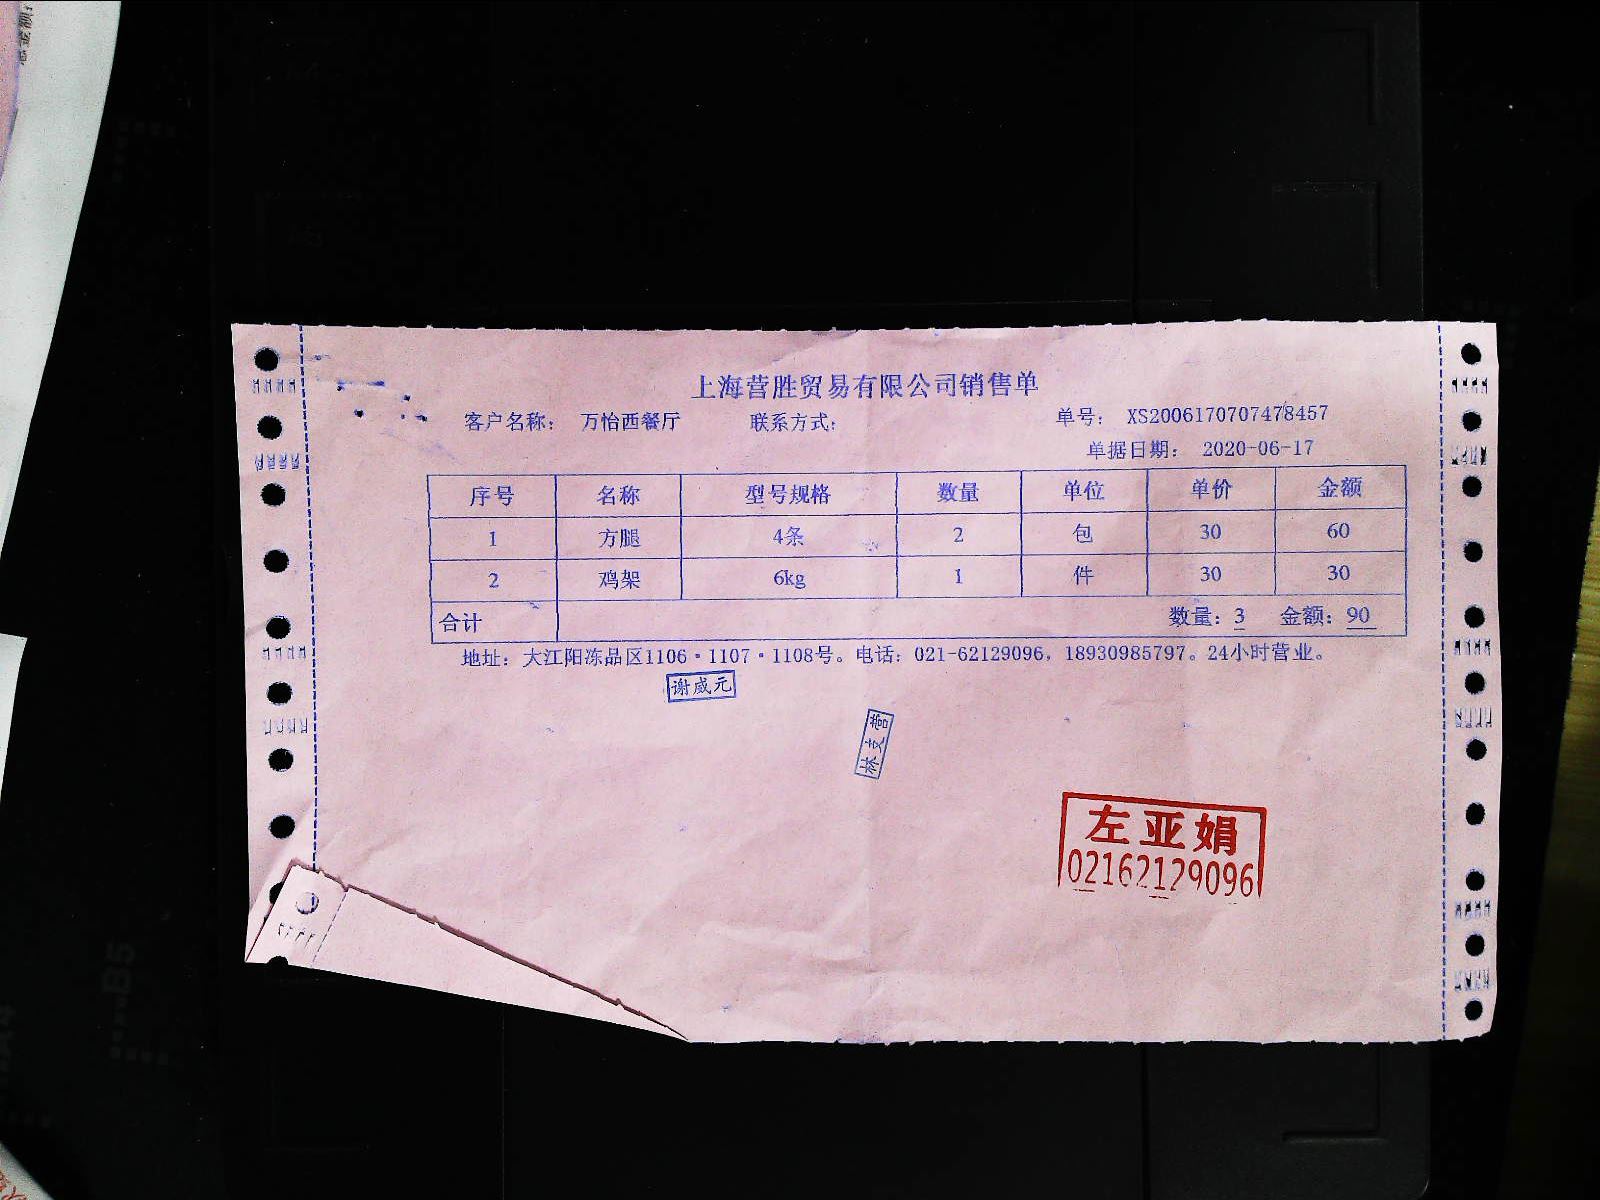 上海营胜贸易有限公司销售单
客户名称： 万怡西餐厅 联系方式： 单号： XS2006170707478457
单据日期： 2020-06-17
序号 名称 型号规格 数量 单位 单价 金额
1 方腿 4条 2 包 30 60
2 鸡架 6kg 1 件 30 30
合计 数量：3 金额：90
地址：大江阳冻品区1106·1107·1108号。电话：021-62129096，18930985797。24小时营业。
谢威元
林支营
左亚娟
02162129096
B5